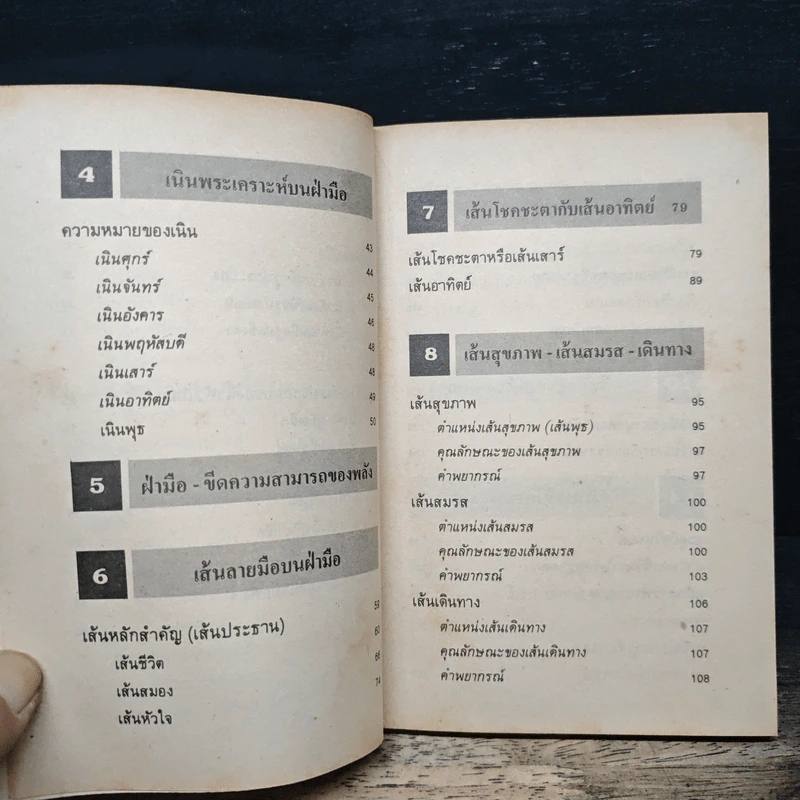 4 เนินพระเคราะห์บนฝ่ามือ
ความหมายของเนิน 43
เนินศุกร์ 44
เนินจันทร์ 45
เนินอังคาร 46
เนินพฤหัสบดี 48
เนินเสาร์ 48
เนินอาทิตย์ 49
เนินพุธ 50
5 ฝ่ามือ - ขีดความสามารถของพลัง
6 เส้นลายมือบนฝ่ามือ
59
เส้นหลักสำคัญ (เส้นประธาน) 60
เส้นชีวิต 66
เส้นสมอง 74
เส้นหัวใจ
7 เส้นโชคชะตากับเส้นอาทิตย์ 79
เส้นโชคชะตาหรือเส้นเสาร์ 79
เส้นอาทิตย์ 89
8 เส้นสุขภาพ - เส้นสมรส - เดินทาง
เส้นสุขภาพ 95
ตำแหน่งเส้นสุขภาพ (เส้นพุธ) 95
คุณลักษณะของเส้นสุขภาพ 97
คำพยากรณ์ 97
เส้นสมรส 100
ตำแหน่งเส้นสมรส 100
คุณลักษณะของเส้นสมรส 100
คำพยากรณ์ 103
เส้นเดินทาง 106
ตำแหน่งเส้นเดินทาง 107
คุณลักษณะของเส้นเดินทาง 107
คำพยากรณ์ 108